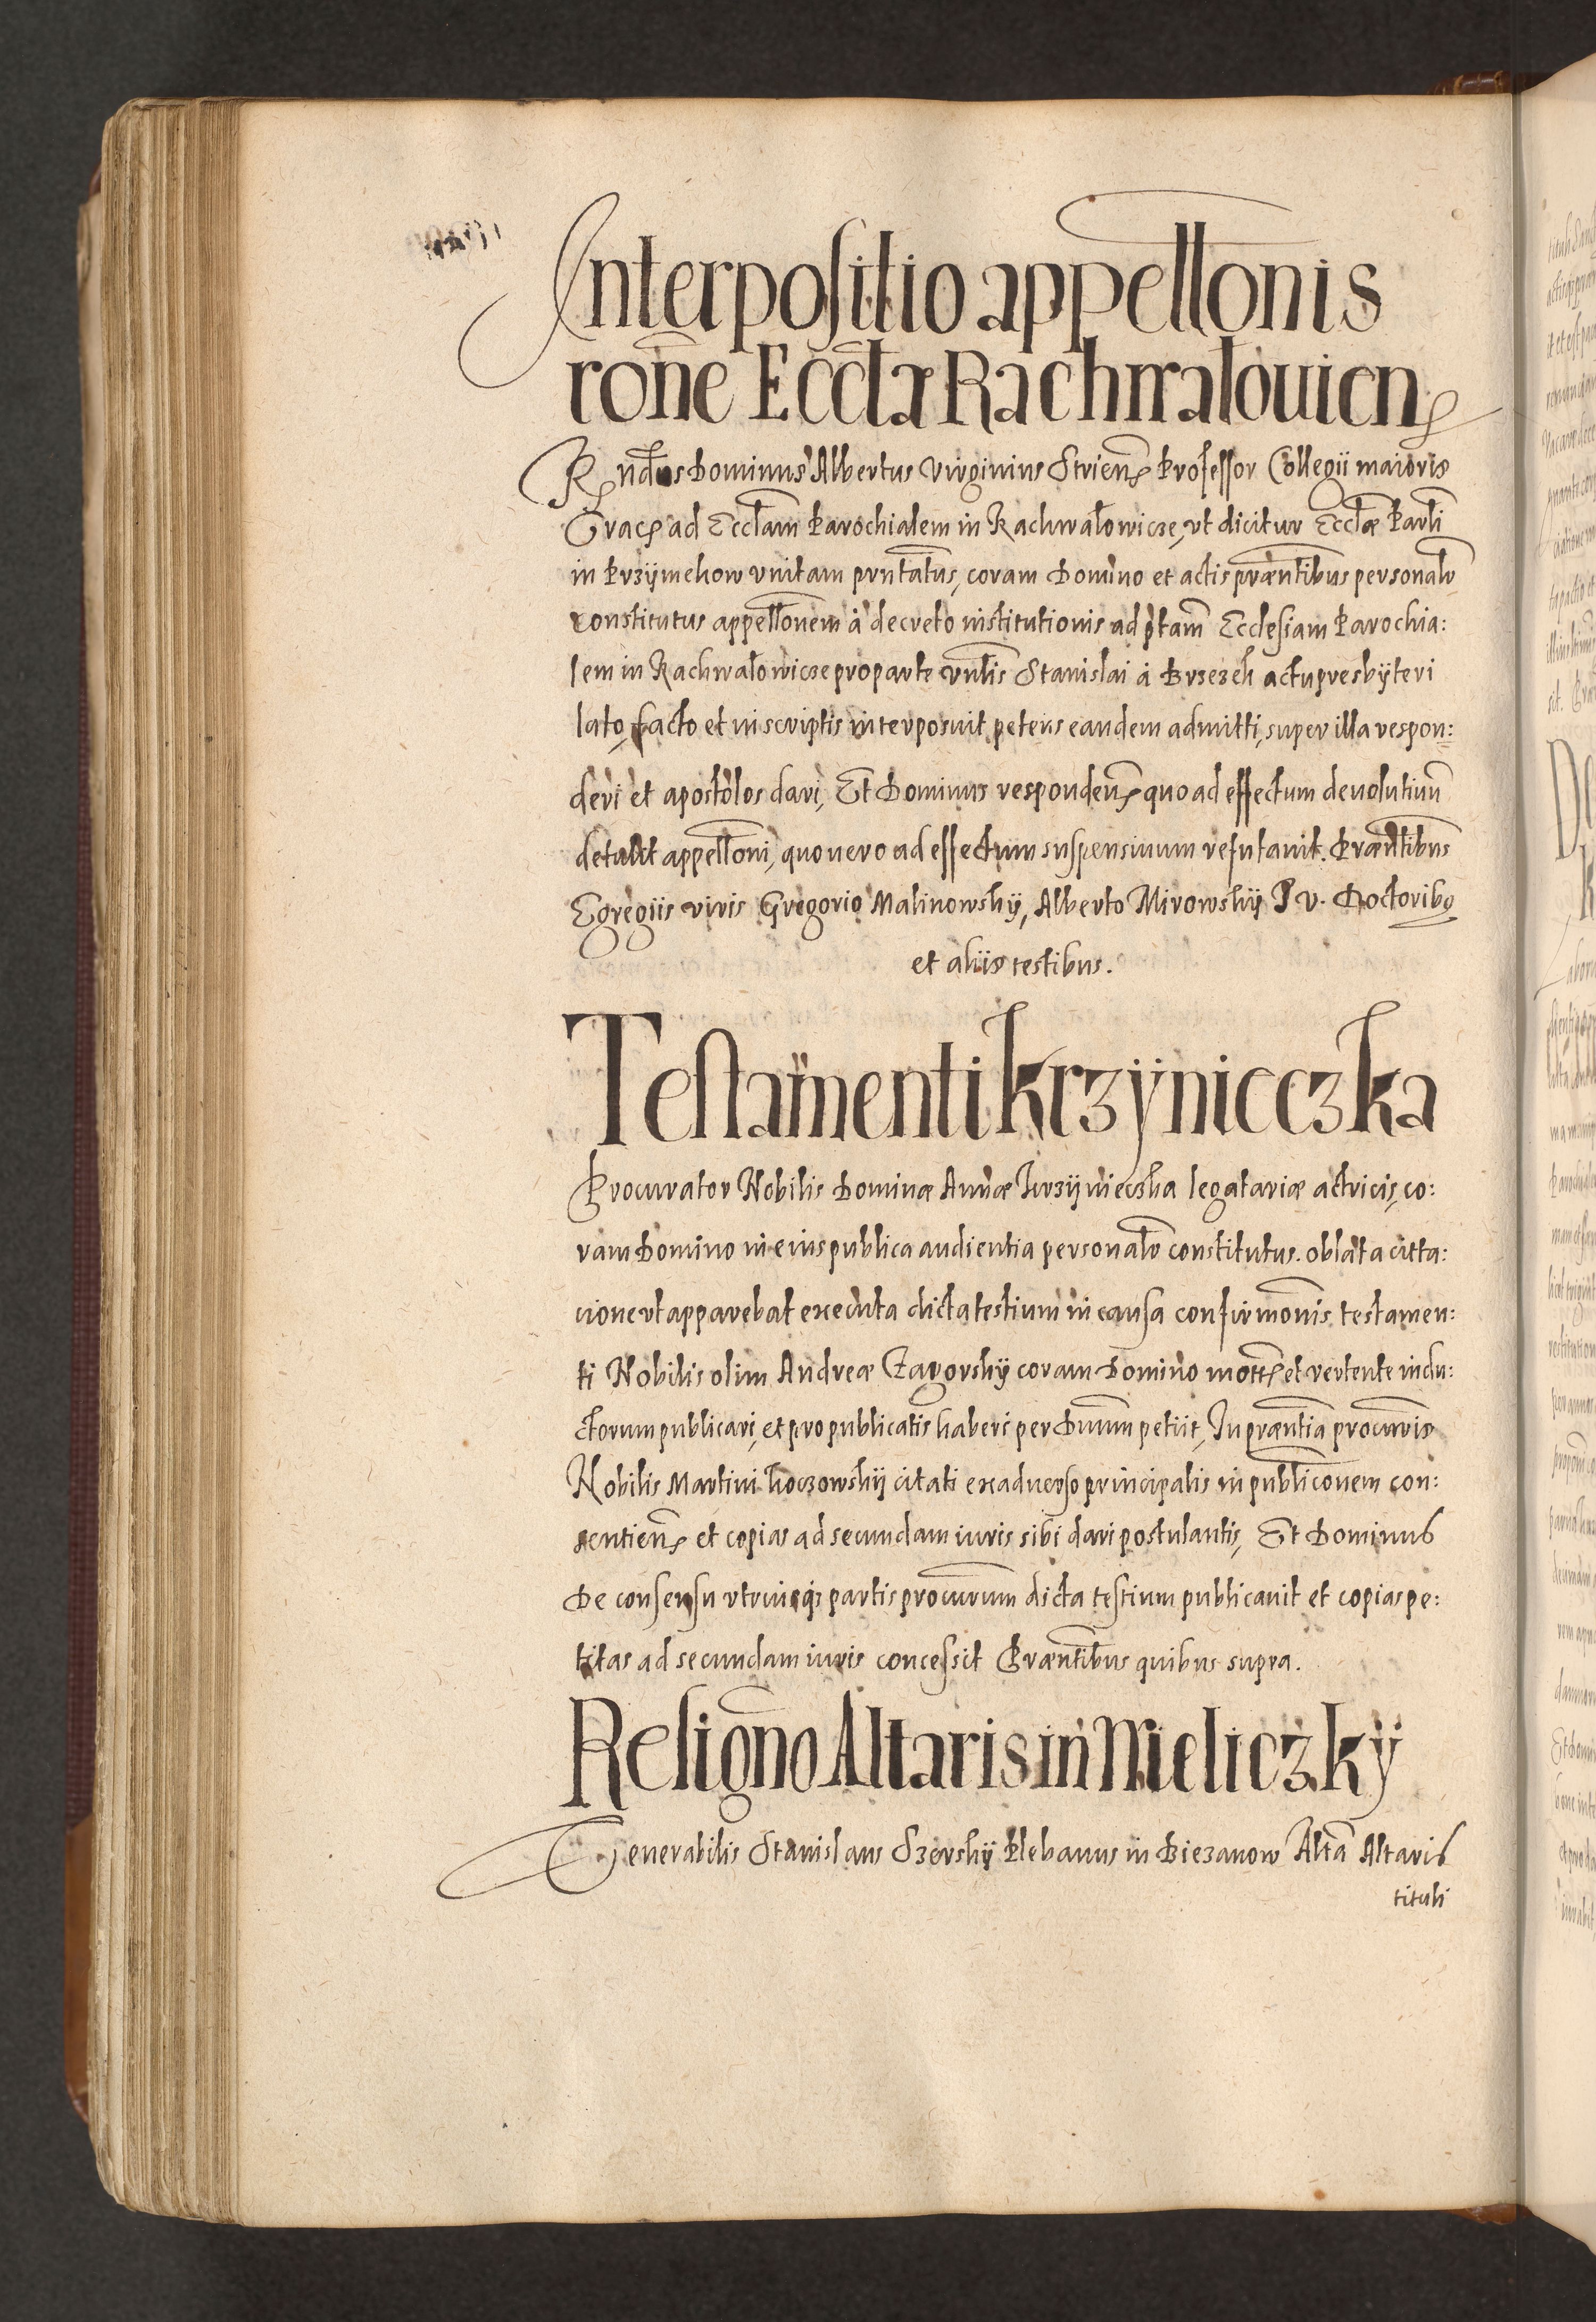 Interpositio appellonis
rone Eccłæ Rachwałouien
Rndus Dominus Albertus Virginius Strien Professor Collegii maioris
Crac ad Eccłam Parochialem in Rachwałowicze, vt dicitur Eccłæ Parłi
in Przÿmekow vnitam prntatus, coram Domino et actis præntibus personalr
constitutus appellonem à decreto institutionis ad ptam Ecclesiam Parochia:
lem in Rachwałowicze pro parte vnłis Stanislai à Brzezek actu presbÿteri
lato, facto et in scriptis interposuit petens eandem admitti, super illa respon:
deri et apostolos dari, Et Dominus responden quo ad effectum deuolutiuu
detulit appelloni, quo uero ad effectum suspensiuum refutauit. Præntibus
Egregiis viris Gregorio Malinowskÿ, Alberto Mirowskÿ J V. Doctoribq
et aliis testibus.
Testamenti Krzÿnieczka
Procurator Nobilis Dominæ Annæ Krzÿnieczka legatariæ actricis, co:
ram Domino in eius publica audientia personalr constitutus. oblata citta:
cione vt apparebat executa dicta testium in causa confirmonis testamen:
ti Nobilis olim Andreæ Zagorskÿ coram Domino mott et vertente indu:
ctorum publicari, et pro publicatis haberi per Dnum petiit, In præntia procuris
Nobilis Martini Koczowskÿ citati ex aduerso principalis in publiconem con:
sentien et copias ad secundam iuris sibi dari postulantis, Et Dominus
De consensu vtriusq partis procurum dicta testium publicauit et copias pe:
titas ad secundam iuris concessit Præntibus quibus supra.
Resigno Altaris in Wieliczkÿ
Venerabilis Stanislaus Szerskÿ Plebanus in Biezanow Alta Altaris
tituli